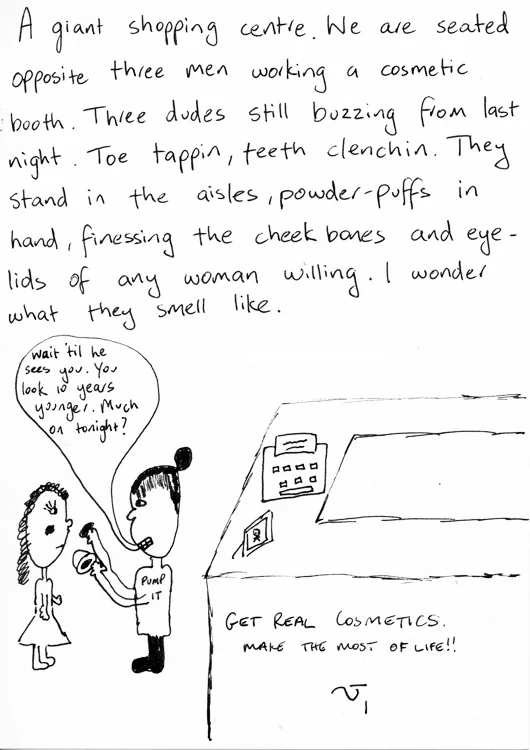 A giant shopping centre. We are seated
opposite three men working a cosmetic
booth. Three dudes still buzzing from last
night. Toe tappin, teeth clenchin. They
stand in the aisles, powder-puffs in
hand, finessing the cheek bones and eye-
lids of any woman willing. I wonder
what they smell like.
wait 'til he
sees you. You
look 10 years
younger. Much
on tonight?
PUMP
IT
GET REAL COSMETICS.
MAKE THE MOST OF LIFE!!